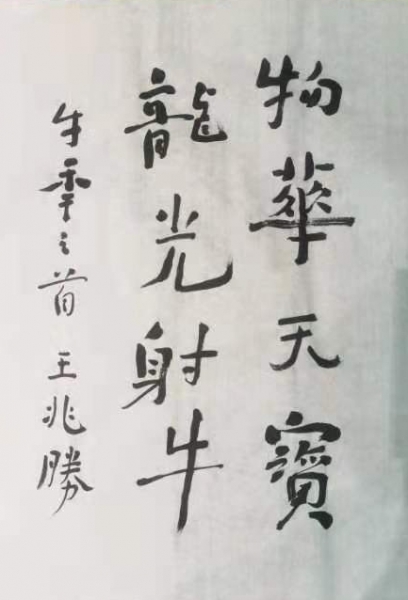 物華天寶
龍光射牛
牛之首 王兆勝